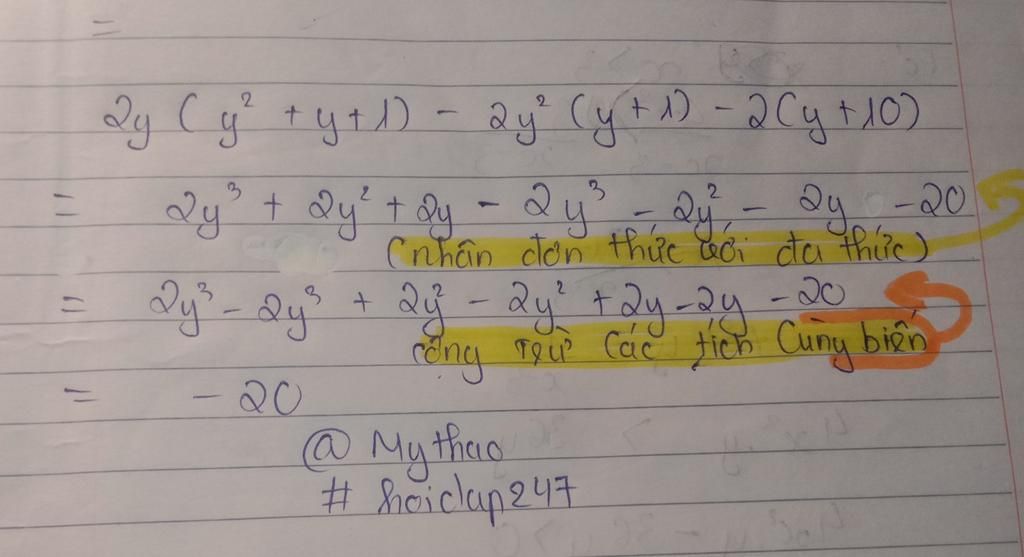 =
2y (y² + y + 1) - 2y² (y + 1) - 2(y + 10)
= 2y³ + 2y² + 2y - 2y³ - 2y² - 2y - 20
(nhân đơn thức với đa thức)
= 2y³ - 2y³ + 2y² - 2y² + 2y - 2y - 20
cộng trừ các tích cùng biến
= - 20
@ Mythao
# hoidap247